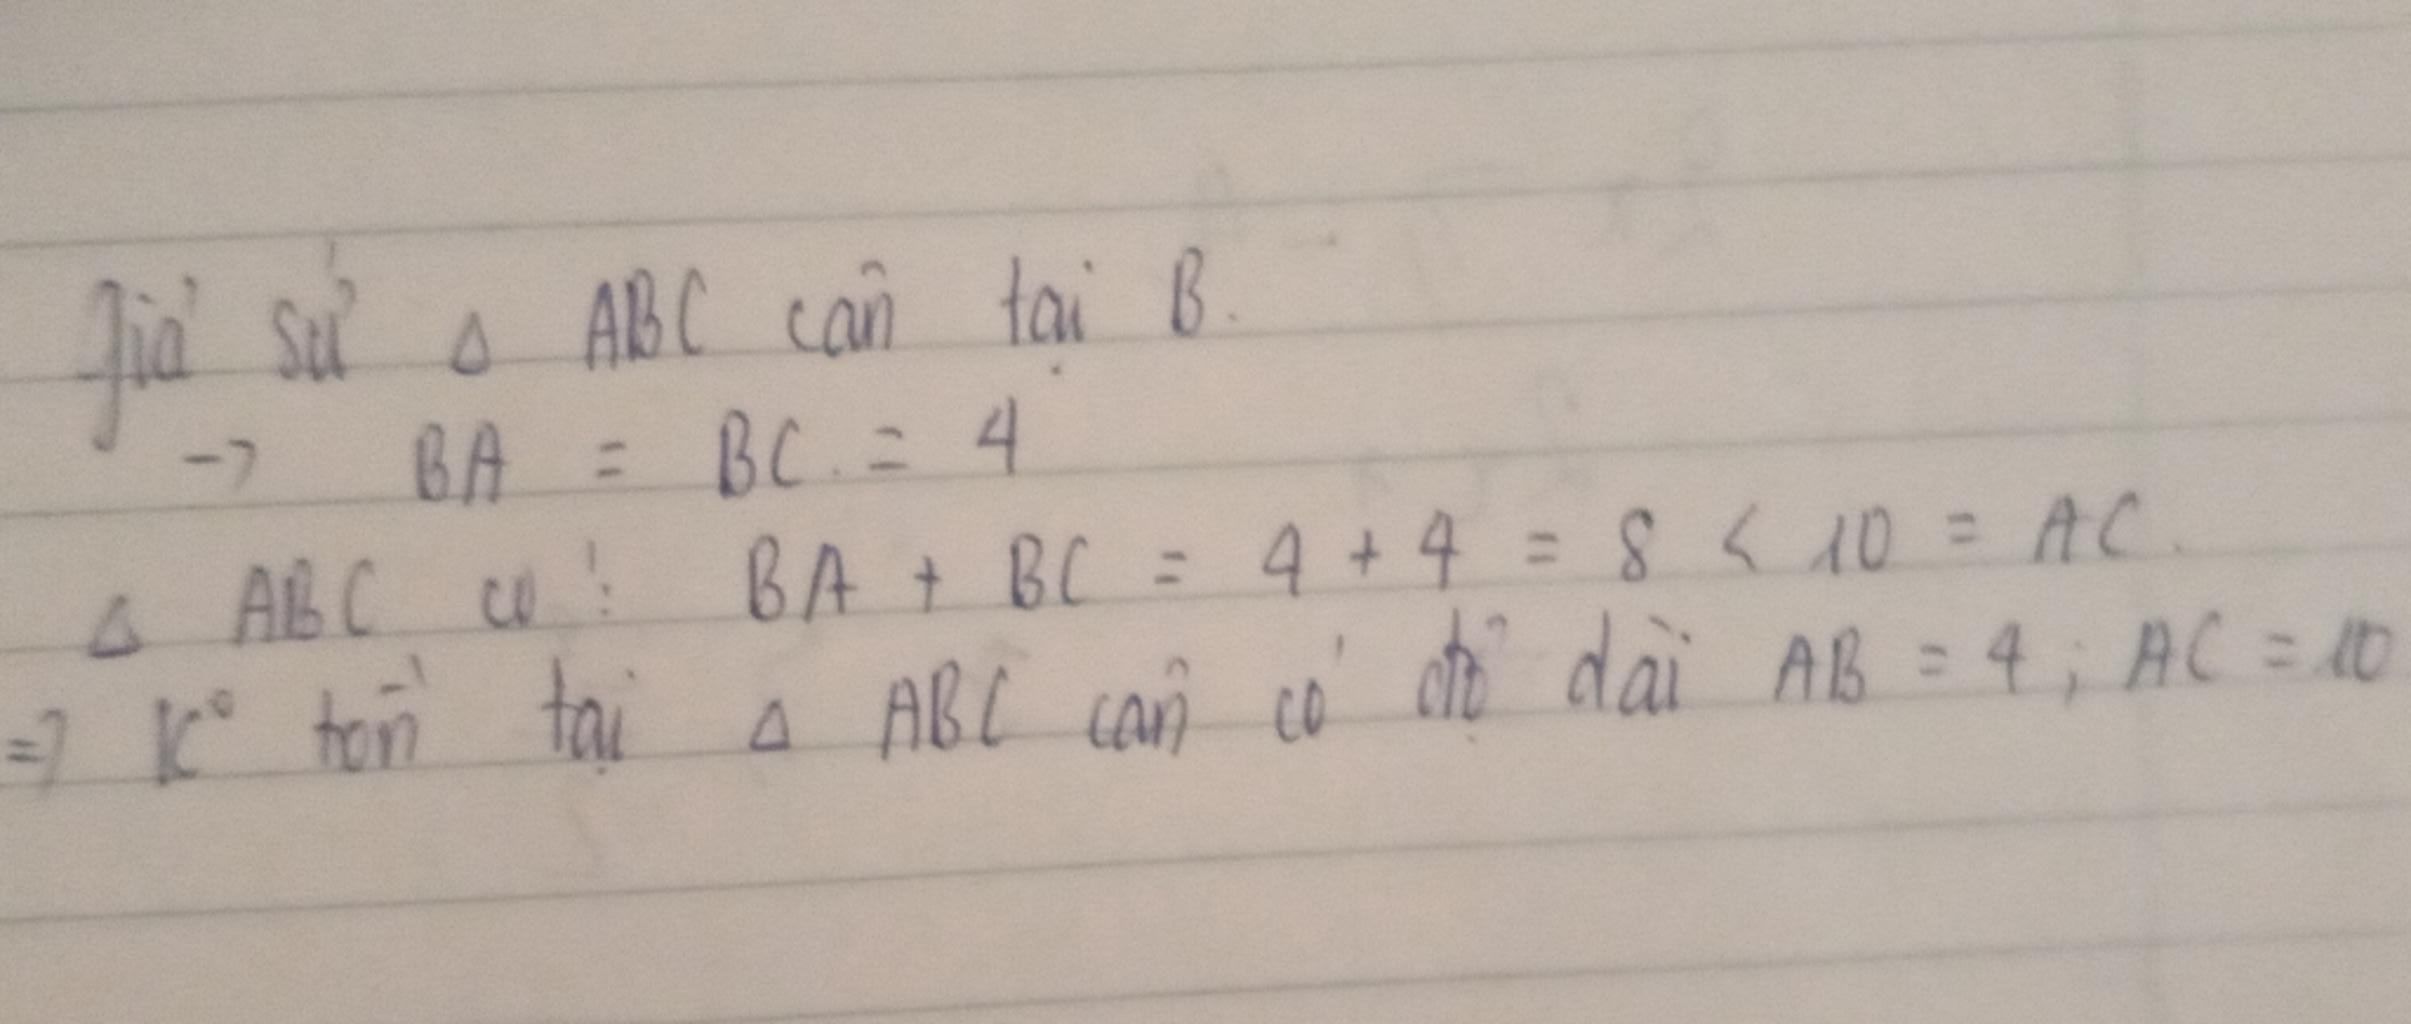 Giả sử Δ ABC cân tại B.
-> BA = BC. = 4
Δ ABC có : BA + BC = 4 + 4 = 8 < 10 = AC.
=> K° tồn tại Δ ABC cân có độ dài AB = 4 ; AC = 10